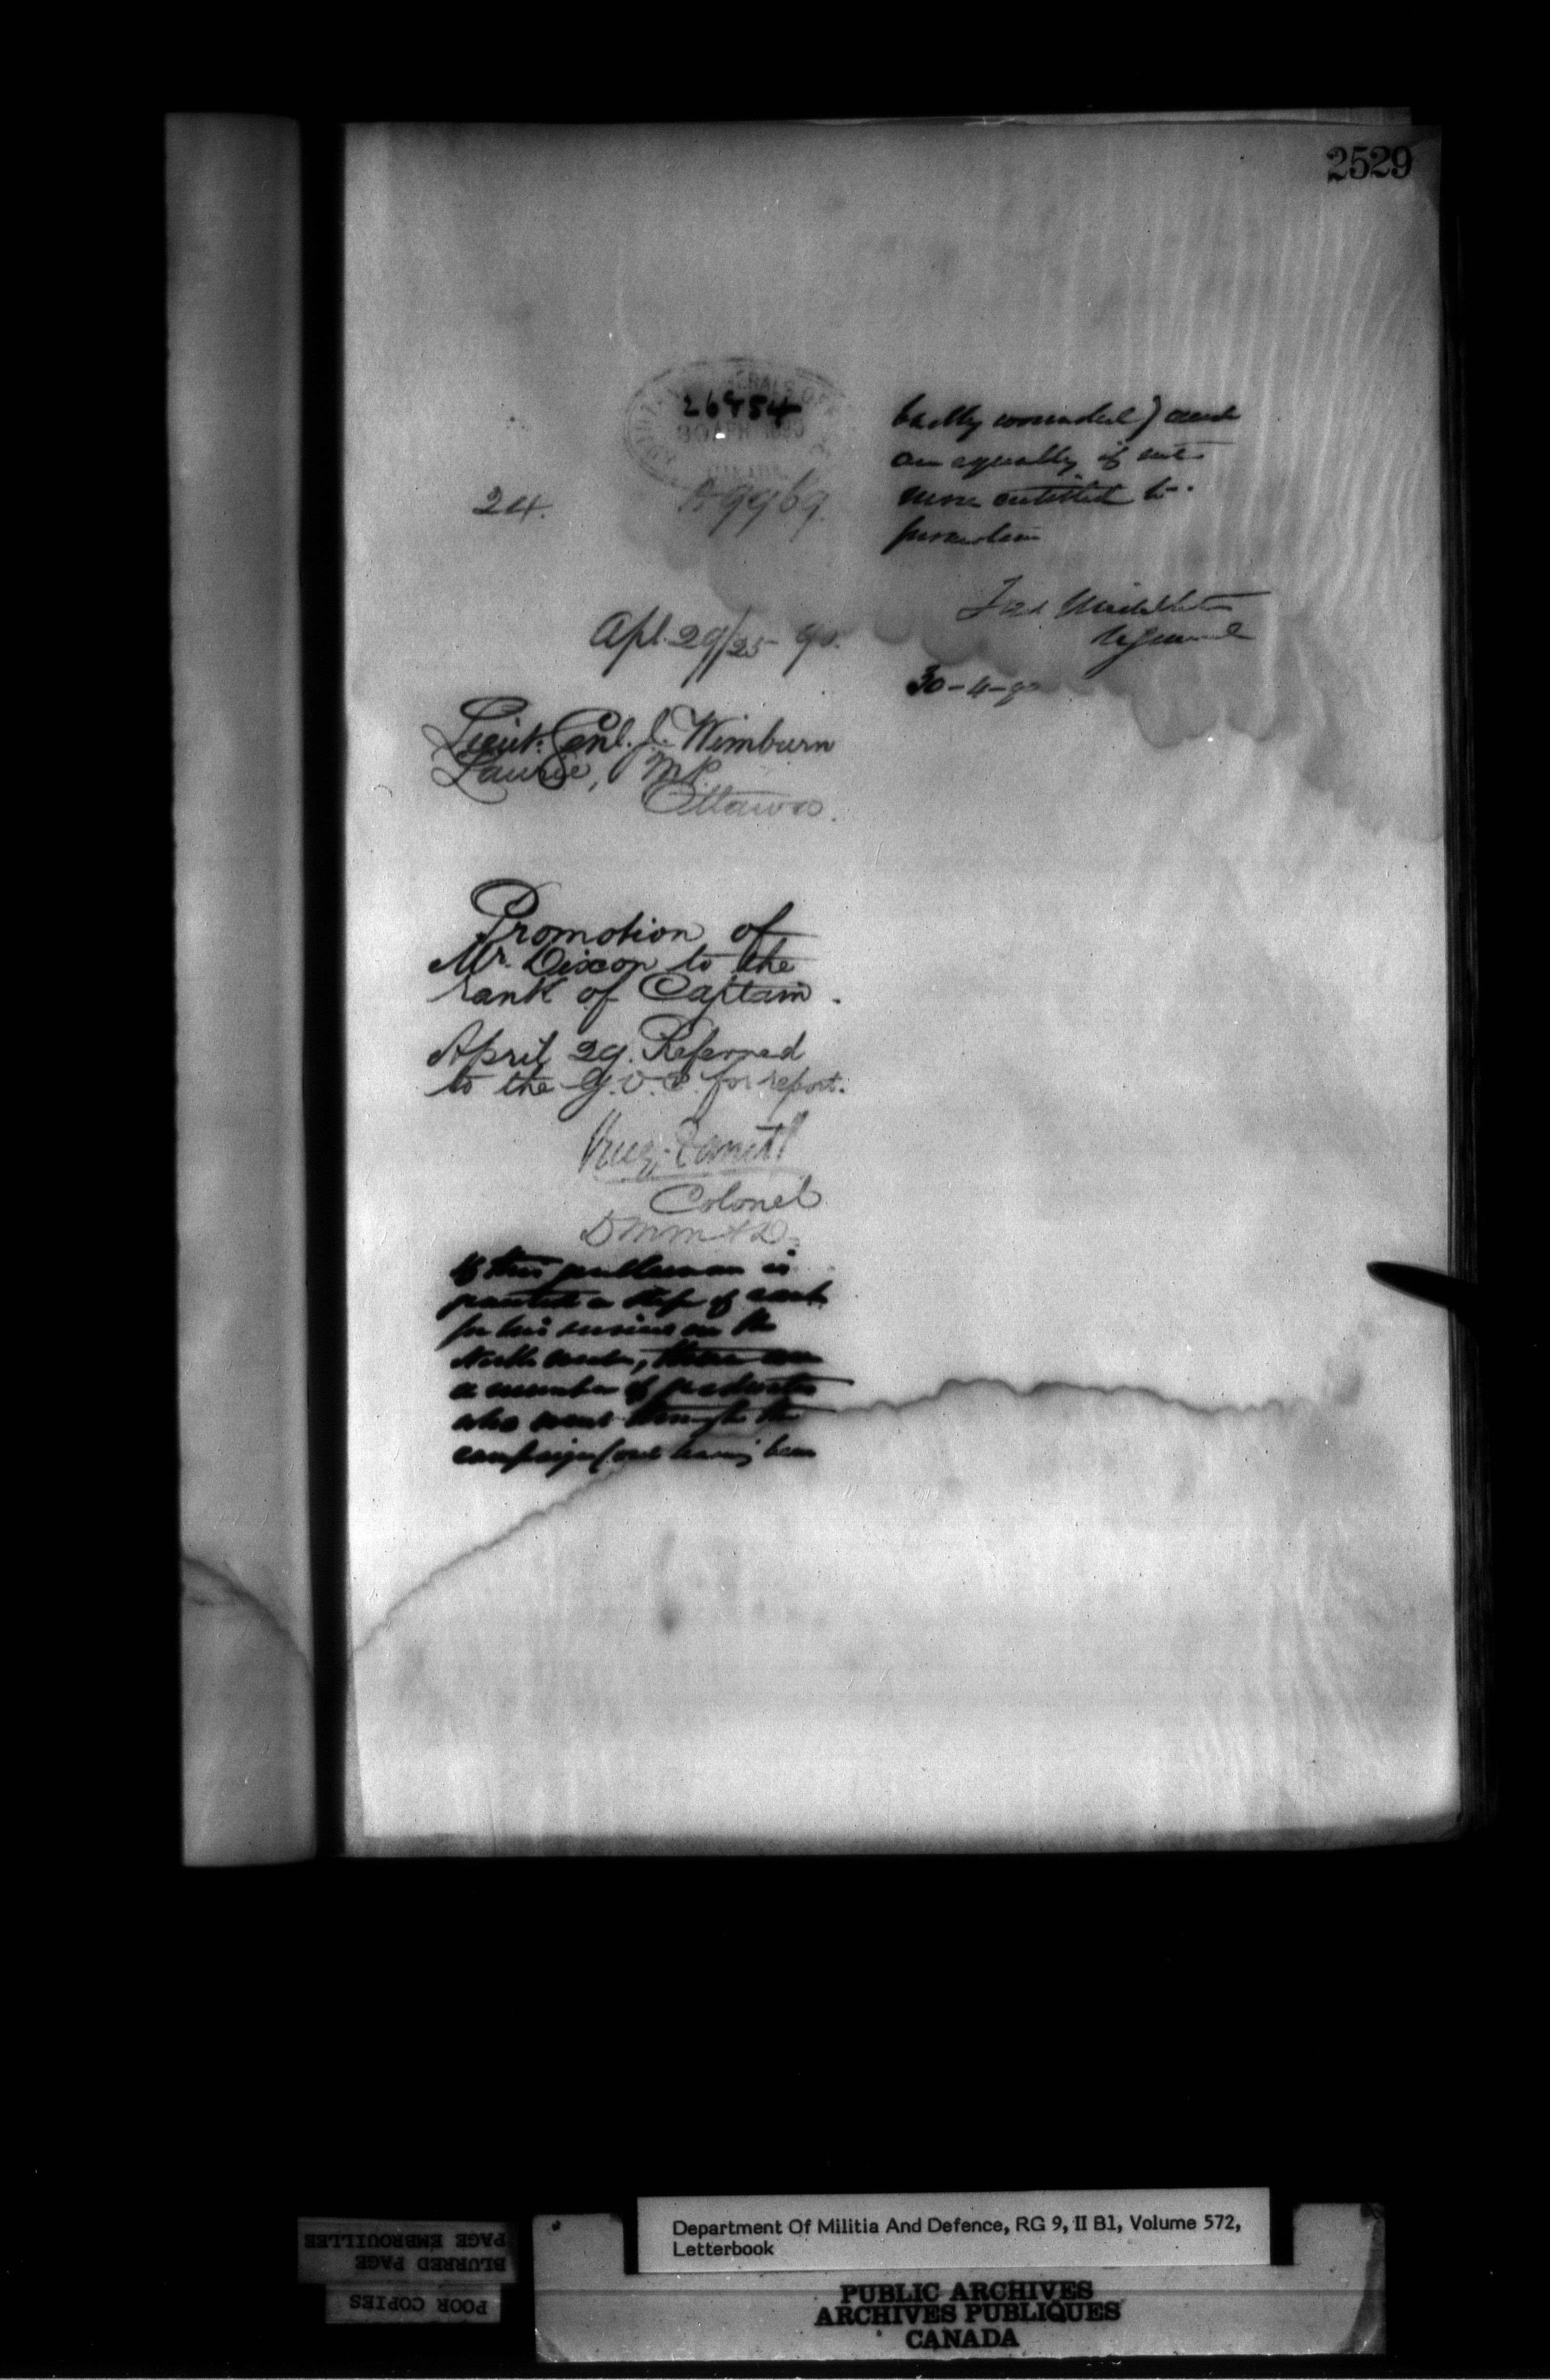 2529
26954
30 APR 1890
24.
A9969.
Apl. 29/25 90.
Lieut. Genl. J. Wimburn
Laurie, M.P.
Ottawa.
Promotion of
Mr. Dixon to the
rank of Captain.
April 29. Referred
to the G.O.C. for report.
Colonel
D M M & D.
If this gentleman is
granted a step of rank
for his services in the
North west, there are
a number of graduates
who went through the
campaign (one having been
badly wounded) and
are equally if not
more entitled to
promotion
Fred Middleton
Lt General
30-4-90
Department Of Militia And Defence, RG 9, II B1, Volume 572,
Letterbook
PUBLIC ARCHIVES
ARCHIVES PUBLIQUES
CANADA
PAGE EMBROUILLEE
BLURRED PAGE
POOR COPIES